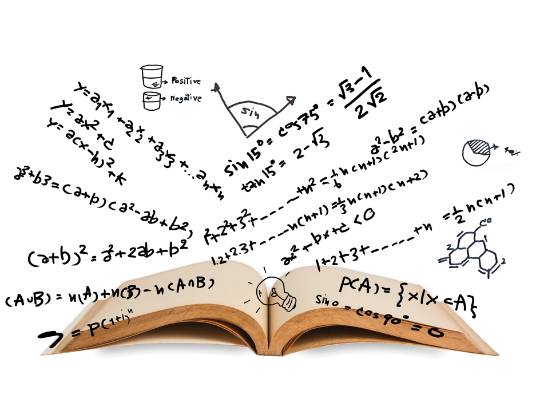 Positive
Negative
sin
y = a₁x₁ + a₂x₂ + a₃x₃ + ... aₙxₙ
y = ax² + c
y = a(x-h)² + k
sin 15° = cos 75° = √3-1 / 2√2
tan 15° = 2-√3
a²-b² = (a+b)(a-b)
a³+b3 = (a+b)(a²-ab+b²)
1²+2²+3²+------+n² = 1/6 n(n+1)(2n+1)
1.2+2.3+------n(n+1) = 1/3 n(n+1)(n+2)
(a+b)² = a²+2ab+b²
ax²+bx+c <0
1+2+3+......+n = 1/2 n(n+1)
(A∪B) = n(A)+n(B)-n(A∩B)
P(A) = {x|x⊂A}
sin0 = cos90° = 0
= P(1+i)ⁿ